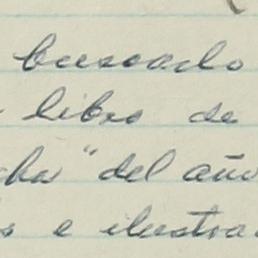 buscado
libro de
cha" del año
s e ilustra